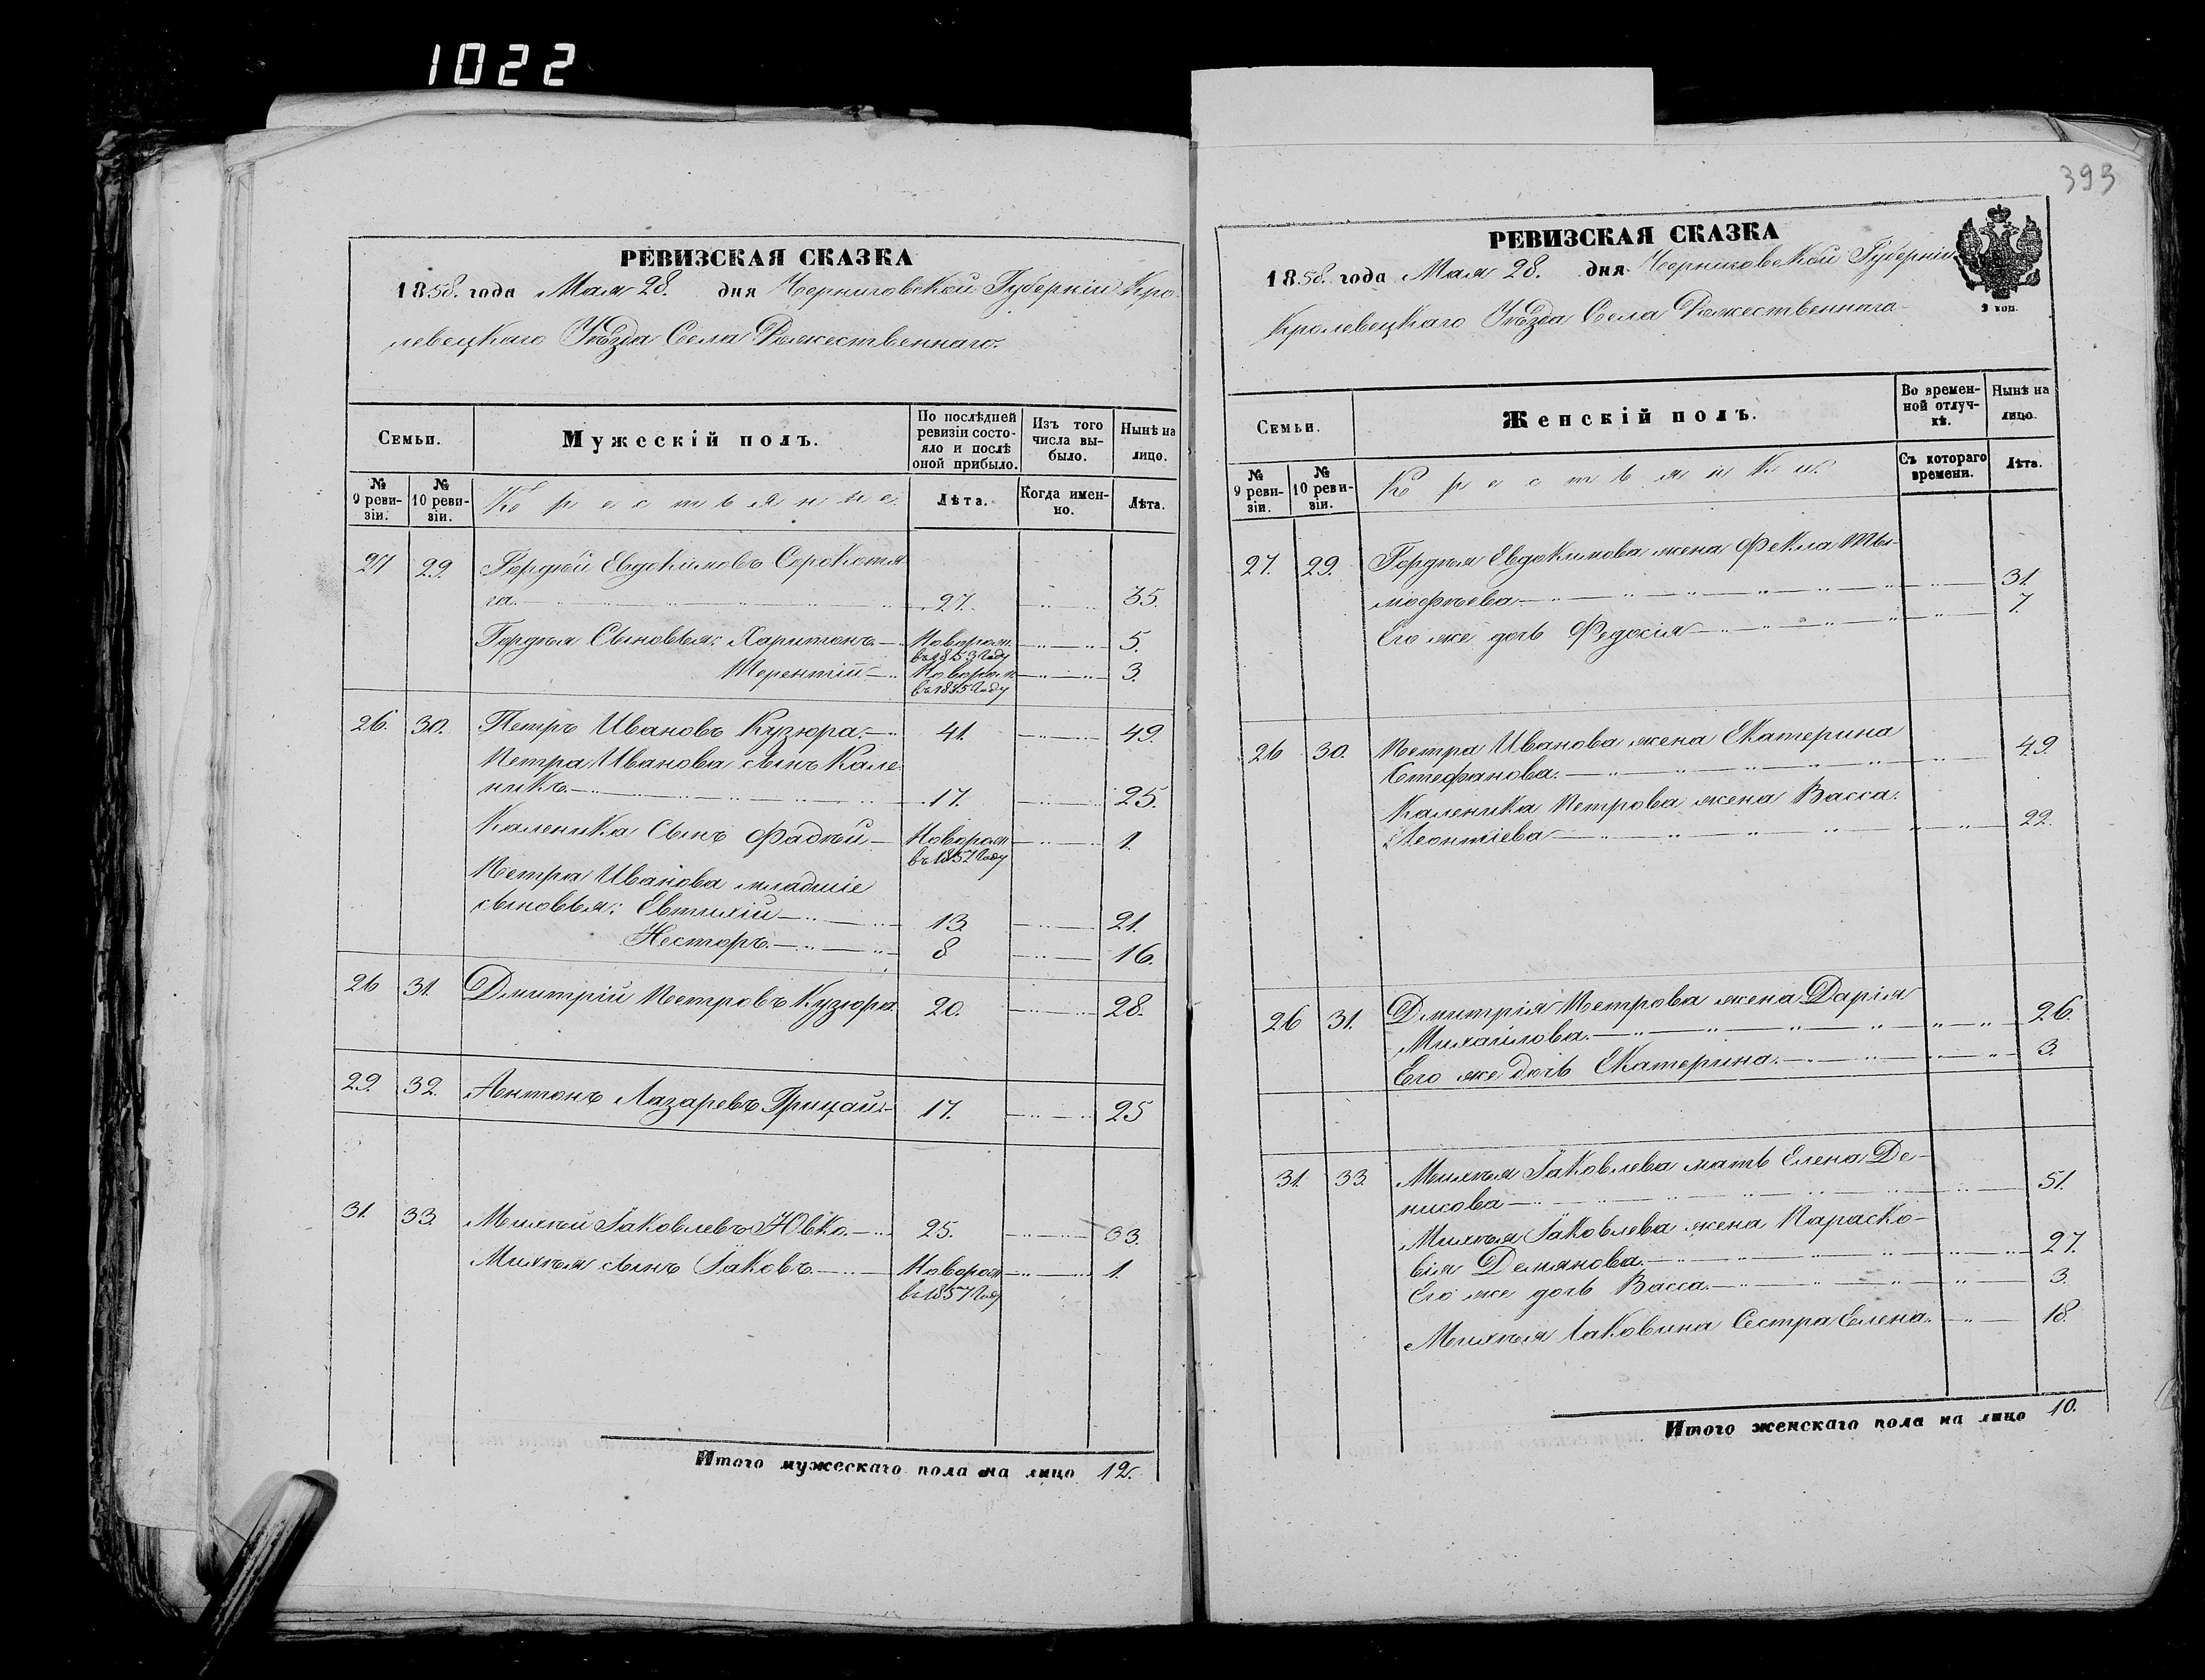 1022
РЕВИЗСКАЯ СКАЗКА
1858. года Мая 28. дня Черниговской Губерніи Кро-
левецкаго Уѣзда Села Рожественнаго.
Семьи.
Мужескій полъ.
По послѣдней ревизіи состояло и послѣ оной прибыло.
Изъ того числа выбыло.
Нынѣ на лицо.
№ 9 ревизіи.
№ 10 ревизіи.
Крестьяне.
Лѣта.
Когда именно.
Лѣта.
27 29. Гордѣй Евдокимовъ Сорокотя
га. 27. 35.
Гордѣя Сыновья: Харитонъ Новорож. 5.
въ 1853 Году
Терентій Новорож. 3.
въ 1855 Году
26. 30. Петръ Ивановъ Кузюра. 41. 49.
Петра Иванова сынъ Кале-
никъ. 17. 25.
Каленика Сынъ Фадѣй Новорож 1.
въ 1857 Году
Петра Иванова младшіе
сыновья: Евтихій 13. 21.
Несторъ. 8 16.
26 31. Дмитрій Петровъ Кузюра. 20. 28.
29. 32. Антонъ Лазаревъ Грицай. 17. 25
31. 33. Михѣй Іаковлевъ Ювко. 25. 33.
Михѣя сынъ Іаковъ. Новорож 1.
въ 1857 Году
Итого мужескаго пола на лицо 12.
393
РЕВИЗСКАЯ СКАЗКА
1858. года Мая 28. дня Черниговской Губерніи
Кролевецкаго Уѣзда Села Рожественнаго
3 коп.
Семьи.
Женскій полъ.
Во временной отлучкѣ.
Нынѣ на лицо.
№ 9 ревизіи.
№ 10 ревизіи.
Крестьянки.
Съ котораго времени.
Лѣта.
27. 29. Гордѣя Евдокимова жена Фекла Ты-
мофѣева. 31.
Его же дочь Федосія 7.
26 30. Петра Иванова жена Екатерина
Стефанова. 49.
Каленика Петрова жена Васса.
Леонтіева 22.
26 31. Дмитрія Петрова жена Дарія
Михайлова. 26.
Его же дочь Екатерина. 3.
31. 33. Михѣя Іаковлева мать Елена Де-
нисова 51.
Михѣя Іаковлева жена Параско-
вія Демянова. 27.
Его же дочь Васса. 3.
Михѣя Іаковина Сестра Елена. 18.
Итого женскаго пола на лицо 10.